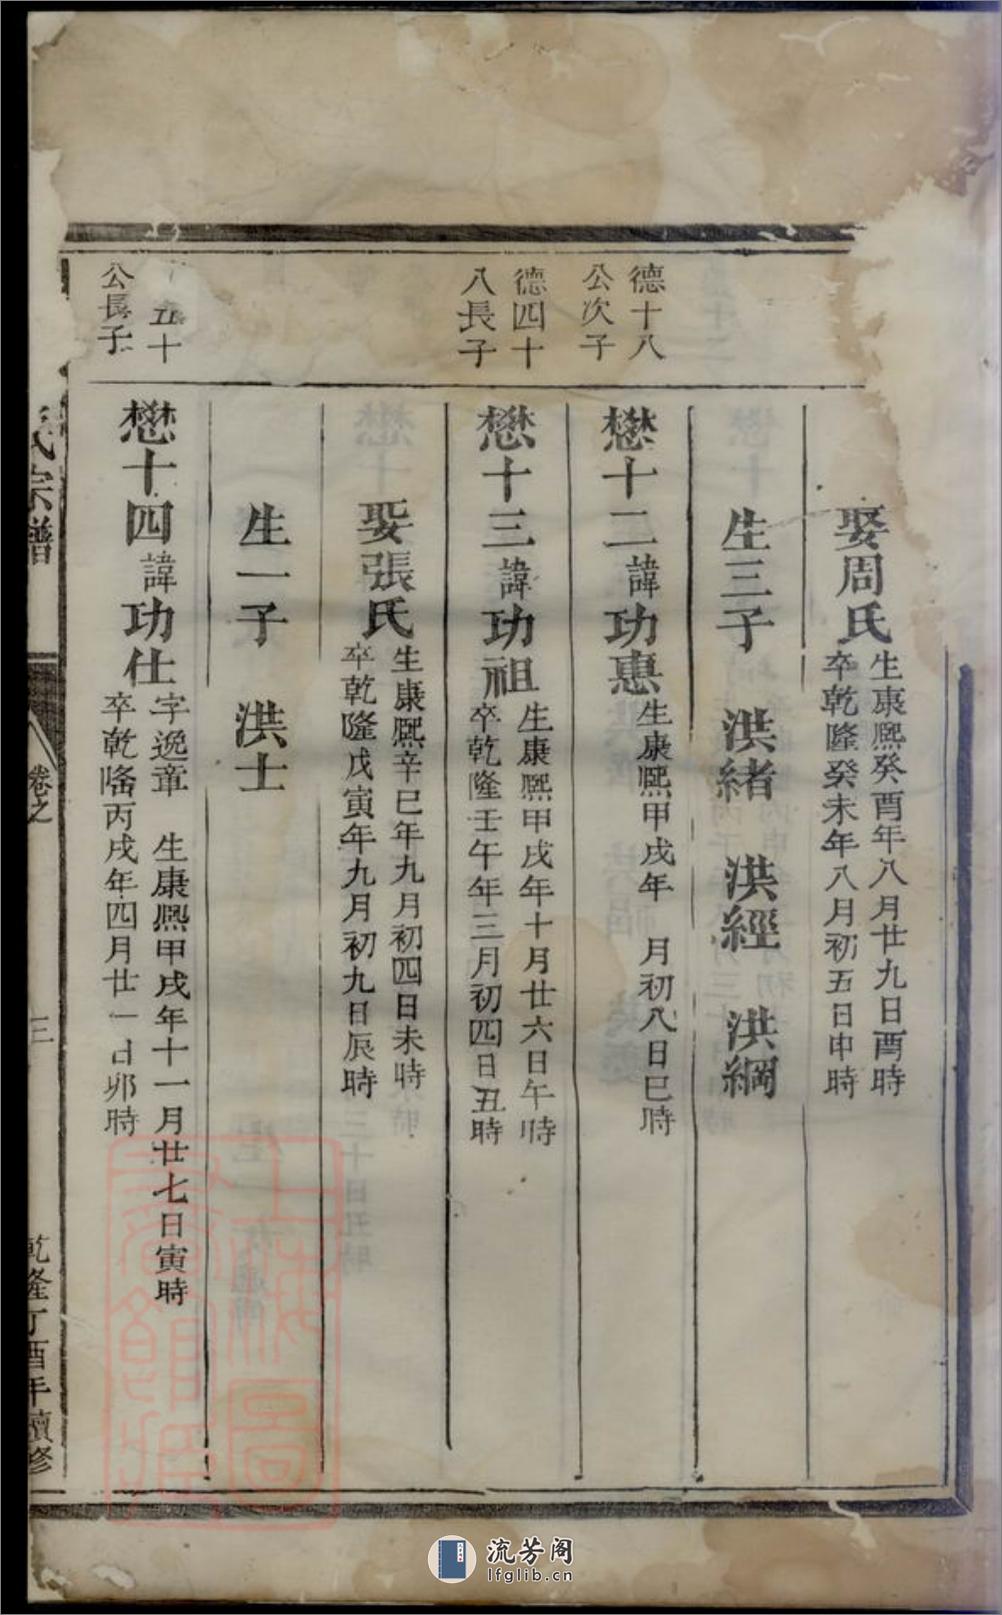 娶周氏
生康熙癸酉年八月廿九日酉時
卒乾隆癸未年八月初五日申時
生三子 洪緒 洪經 洪綱
德十八
公次子
懋十二諱功惠
生康熙甲戌年 月初八日巳時
德四十
八長子
懋十三諱功祖
生康熙甲戌年十月廿六日午時
卒乾隆壬午年三月初四日丑時
娶張氏
生康熙辛巳年九月初四日未時
卒乾隆戊寅年九月初九日辰時
生一子 洪士
五十
公長子
懋十四諱功仕
字逸章 生康熙甲戌年十一月廿七日寅時
卒乾隆丙戌年四月廿一日卯時
氏宗譜
卷之
三
乾隆丁酉年續修
上海圖書館藏
流芳阁
lfglib.cn